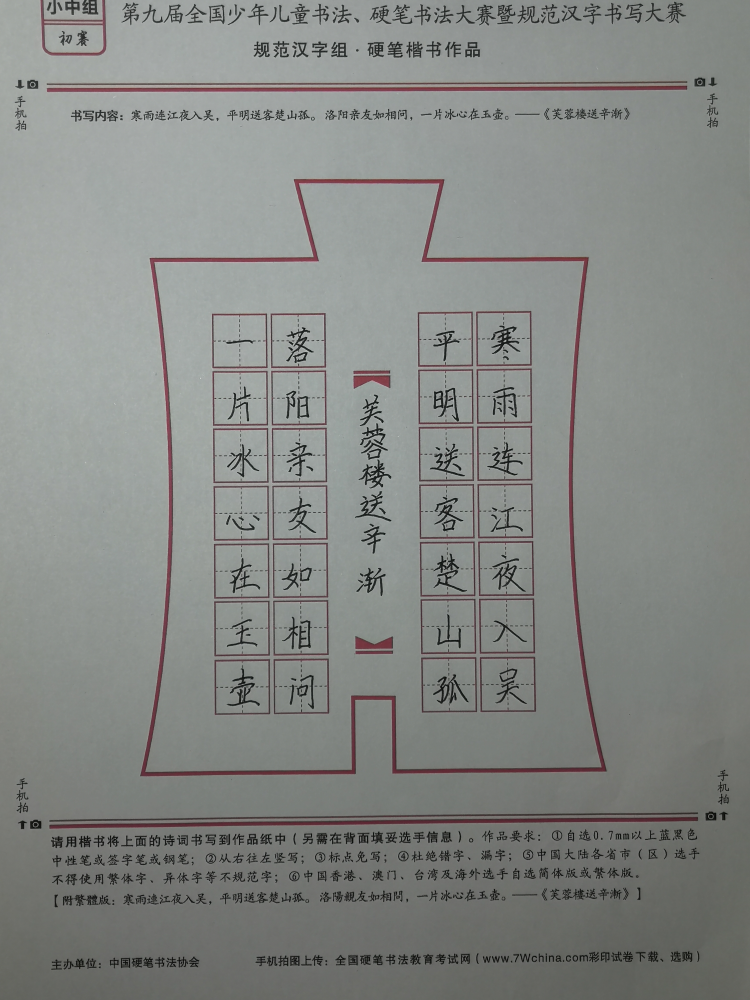 小中组
初赛
第九届全国少年儿童书法、硬笔书法大赛暨规范汉字书写大赛
规范汉字组·硬笔楷书作品
手机拍
手机拍
书写内容：寒雨连江夜入吴，平明送客楚山孤。洛阳亲友如相问，一片冰心在玉壶。——《芙蓉楼送辛渐》
寒雨连江夜入吴
平明送客楚山孤
芙蓉楼送辛渐
落阳亲友如相问
一片冰心在玉壶
手机拍
手机拍
请用楷书将上面的诗词书写到作品纸中（另需在背面填妥选手信息）。作品要求：①自选0.7mm以上蓝黑色
中性笔或签字笔或钢笔；②从右往左竖写；③标点免写；④杜绝错字、漏字；⑤中国大陆各省市（区）选手
不得使用繁体字、异体字等不规范字；⑥中国香港、澳门、台湾及海外选手自选简体版或繁体版。
【附繁體版：寒雨連江夜入吴，平明送客楚山孤。洛陽親友如相問，一片冰心在玉壶。——《芙蓉樓送辛漸》】
主办单位：中国硬笔书法协会
手机拍图上传：全国硬笔书法教育考试网（www.7Wchina.com彩印试卷下载、选购）